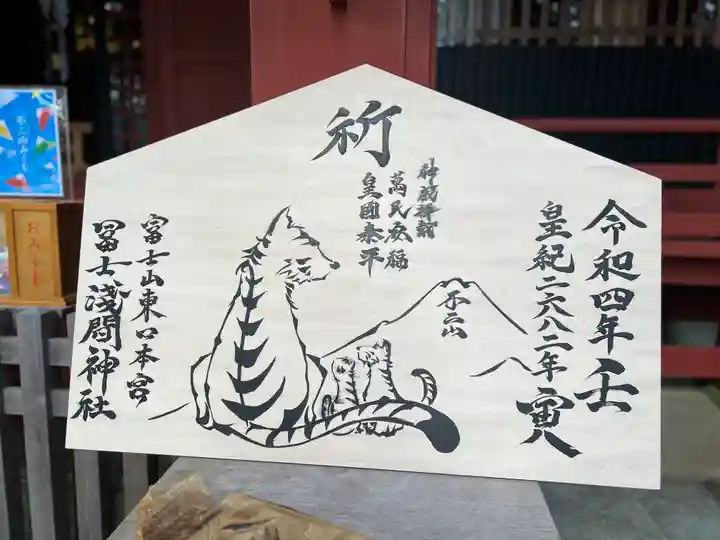 祈
令和四年壬寅
皇紀二六八二年
神威輝譜
萬民欽福
皇国泰平
不二山
富士山東口本宮
冨士淺間神社
おみくじ